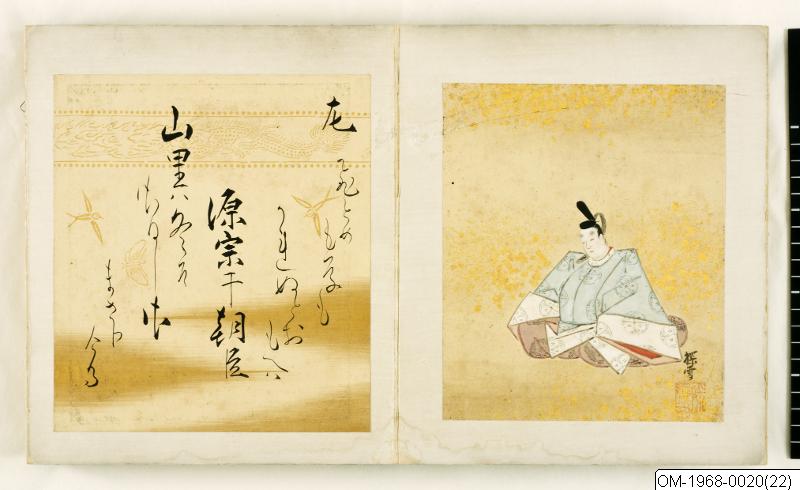 左
ひとめも草も
かれぬとお
もへハ
源宗于朝臣
山里ハ冬そ
さひしさ
まさり
ける
探雪
OM-1968-0020(22)